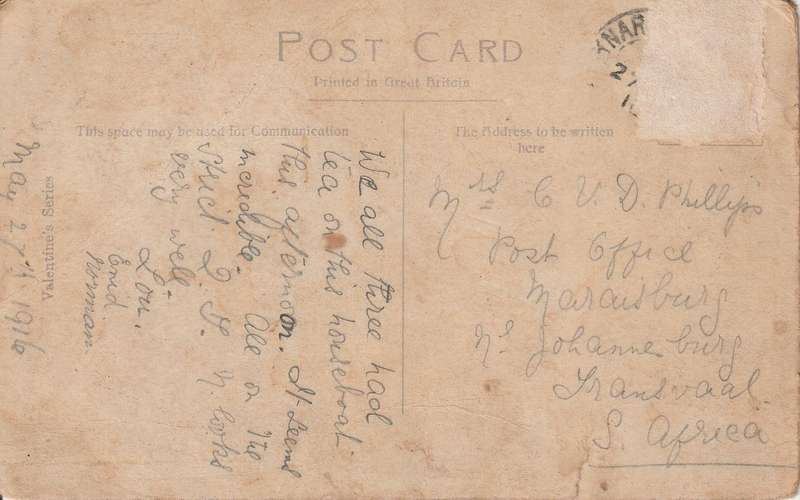 POST CARD
Printed in Great Britain
This space may be used for Communication
The Address to be written
here
Valentine's Series
May 27th 1916
We all three had
tea on this houseboat
this afternoon. It seems
incredible. All on the
strict Q. T. N. looks
very well.
Lou.
Enid
Norman
Mrs C V. D. Phillips
Post Office
Maraisburg
Nr Johannesburg
Transvaal.
S. Africa